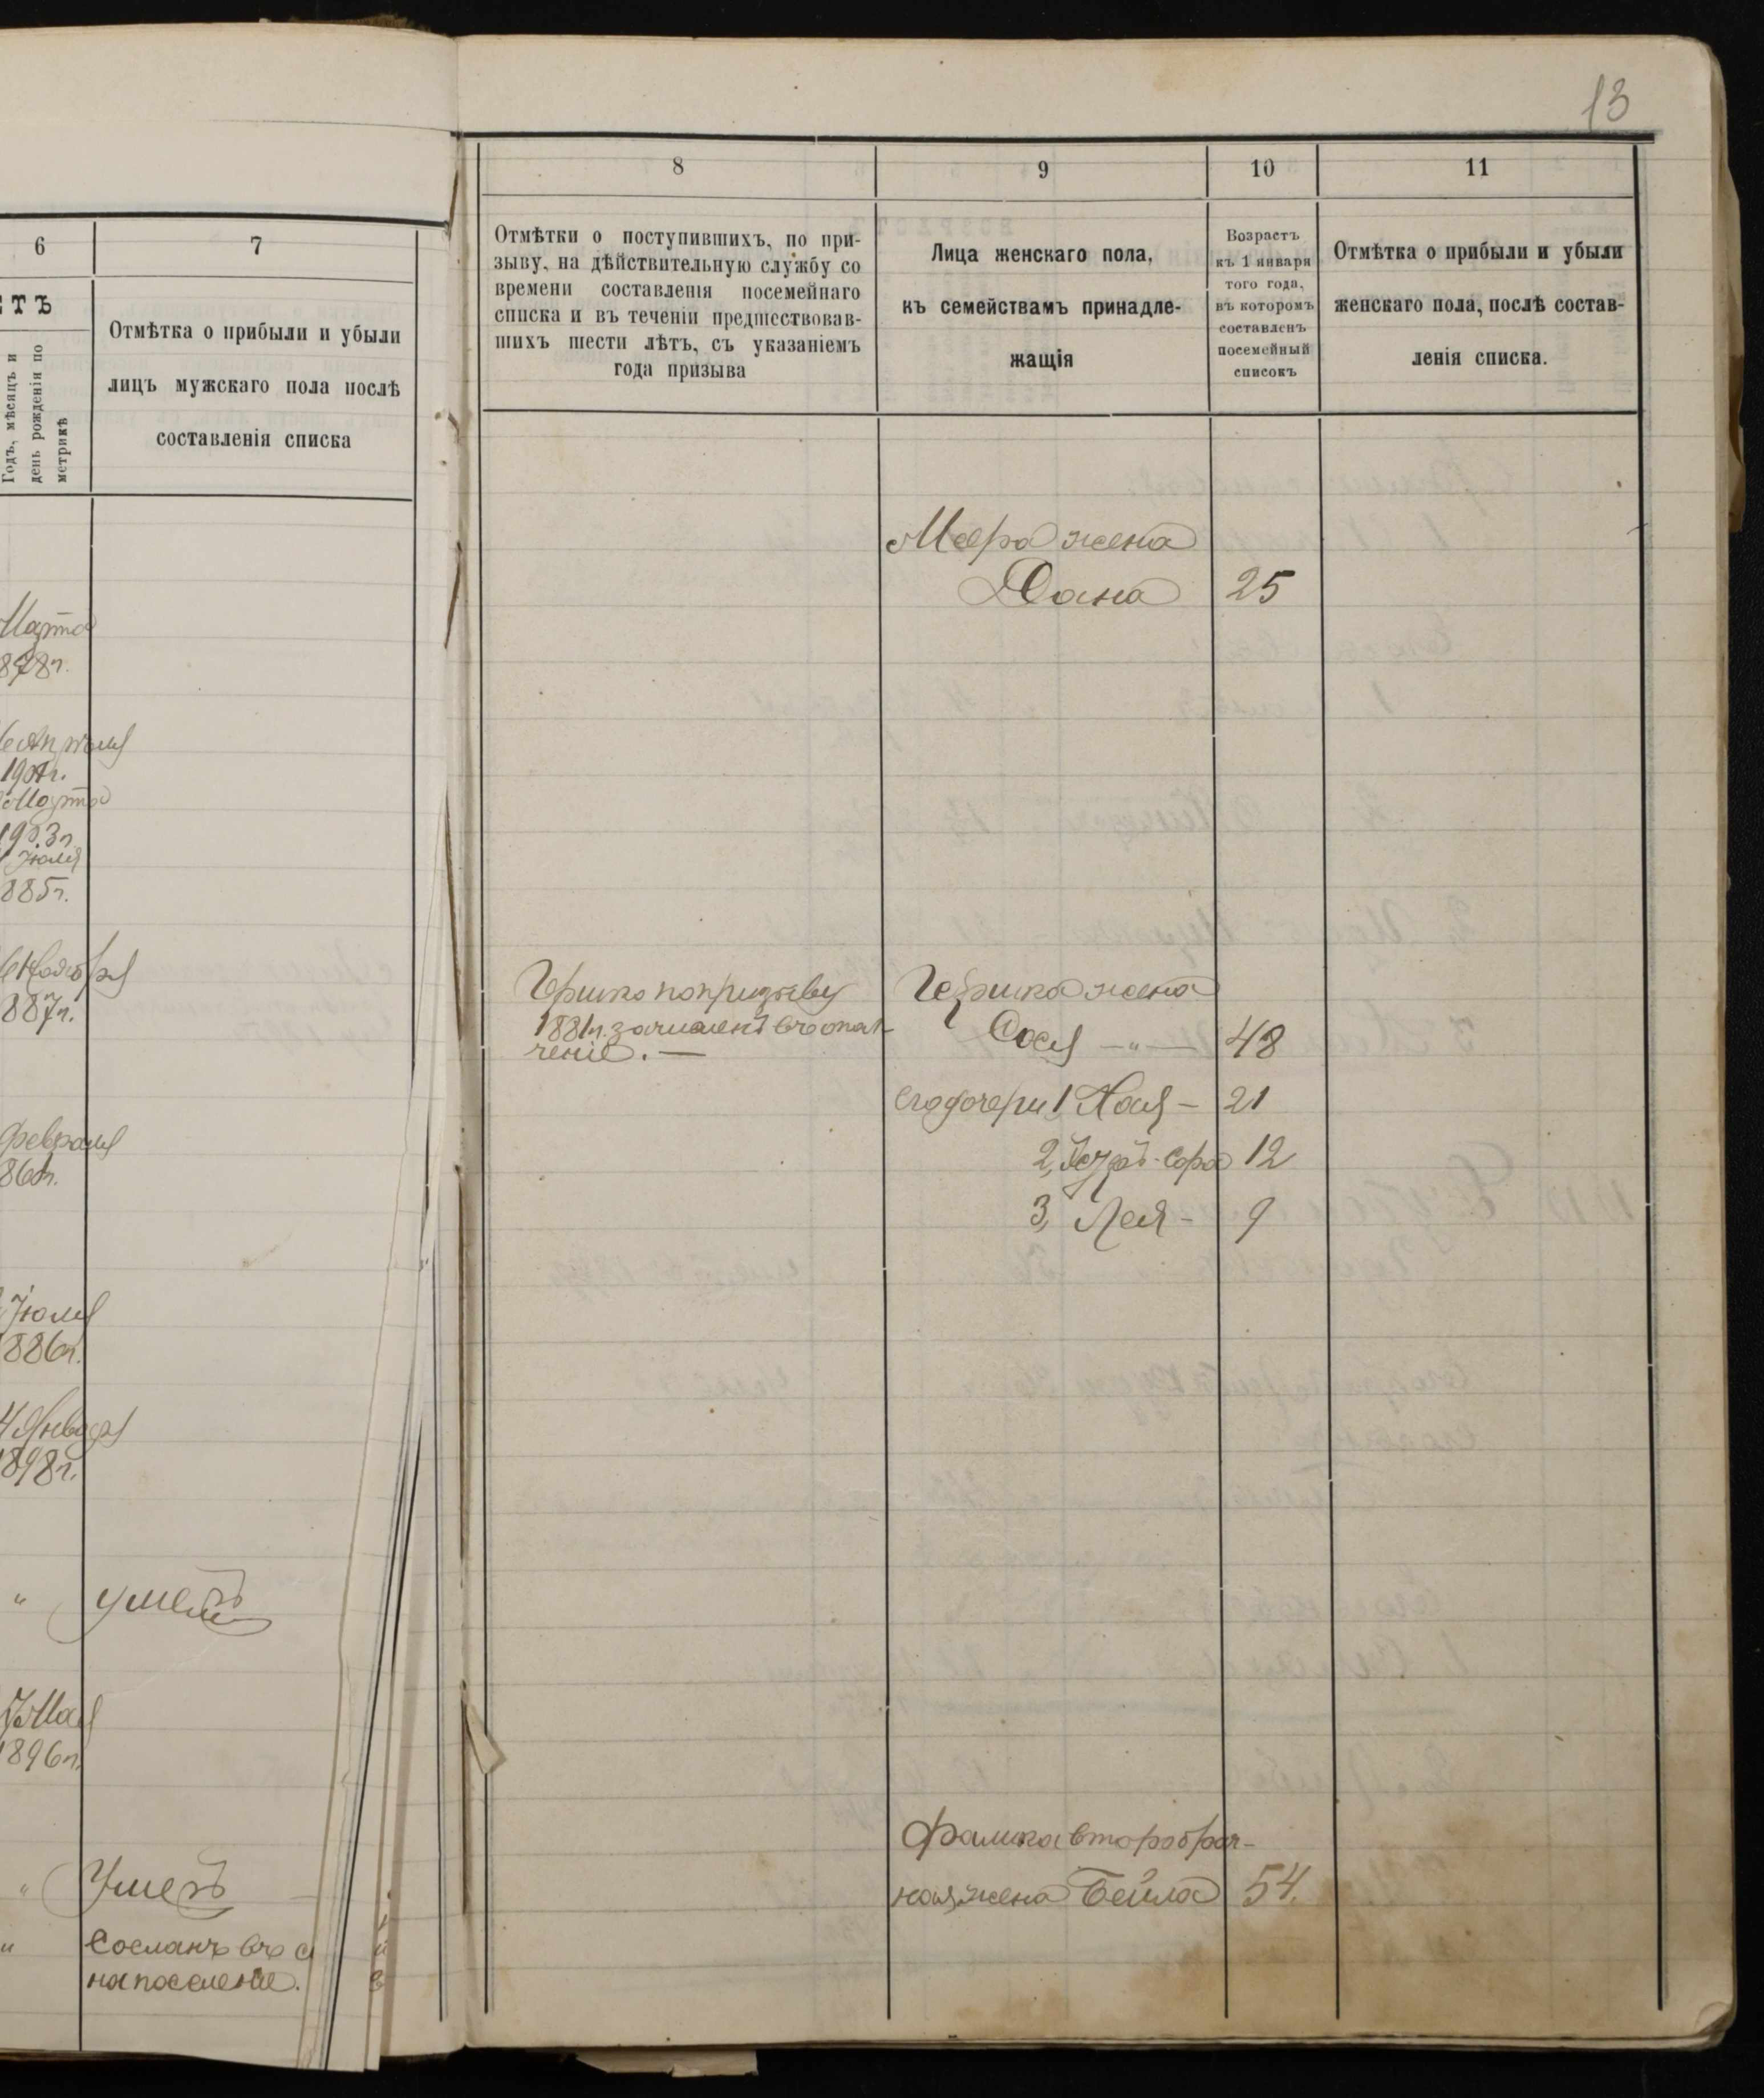 13
6
7
СТЪ
Годъ, мѣсяцъ и
день рожденія по
метрикѣ
Отмѣтка о прибыли и убыли
лицъ мужскаго пола послѣ
составленія списка
Марта
878г.
Апрѣля
190 г.
Марта
1903г.
Іюля
885г.
Ноября
887г.
Февраля
Іюля
886г.
4 Января
1898г.
" умеръ
7 Мая
1896г.
" Умеръ
" Сосланъ въ
на поселеніе.
8
9
10
11
Отмѣтки о поступившихъ, по при-
зыву, на дѣйствительную службу со
времени составленія посемейнаго
списка и въ теченіи предшествовав-
шихъ шести лѣтъ, съ указаніемъ
года призыва
Лица женскаго пола,
къ семействамъ принадле-
жащія
Возрастъ
къ 1 января
того года,
въ которомъ
составленъ
посемейный
списокъ
Отмѣтка о прибыли и убыли
женскаго пола, послѣ состав-
ленія списка.
Меера жена
Хана 25
Гершко по призыву
1881г. зачисленъ въ опол-
ченіе. —
Гершка жена
Сося —"— 48
его дочери 1, Хая — 21
2, Сора 12
3, Лея — 9
Фалика второбрач-
ная жена Бейла 54.